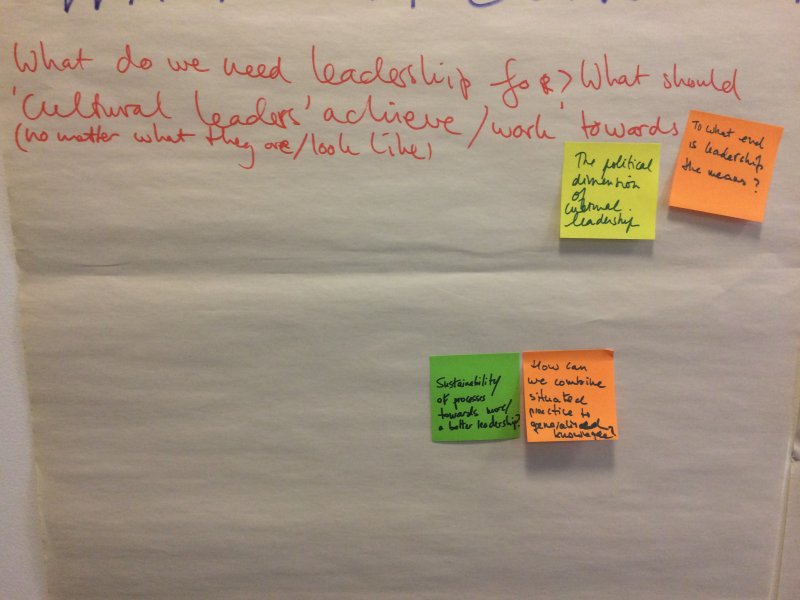 What do we need leadership for? What should
'cultural leaders' achieve / work towards
(no matter what they are/look like)
To what end
is leadership
the means?
The political
dimention
of
cultural
leadership
Sustainability
of processes
towards more/
a better leadership?
How can
we combine
situated
practice to
generalised
knowledge?